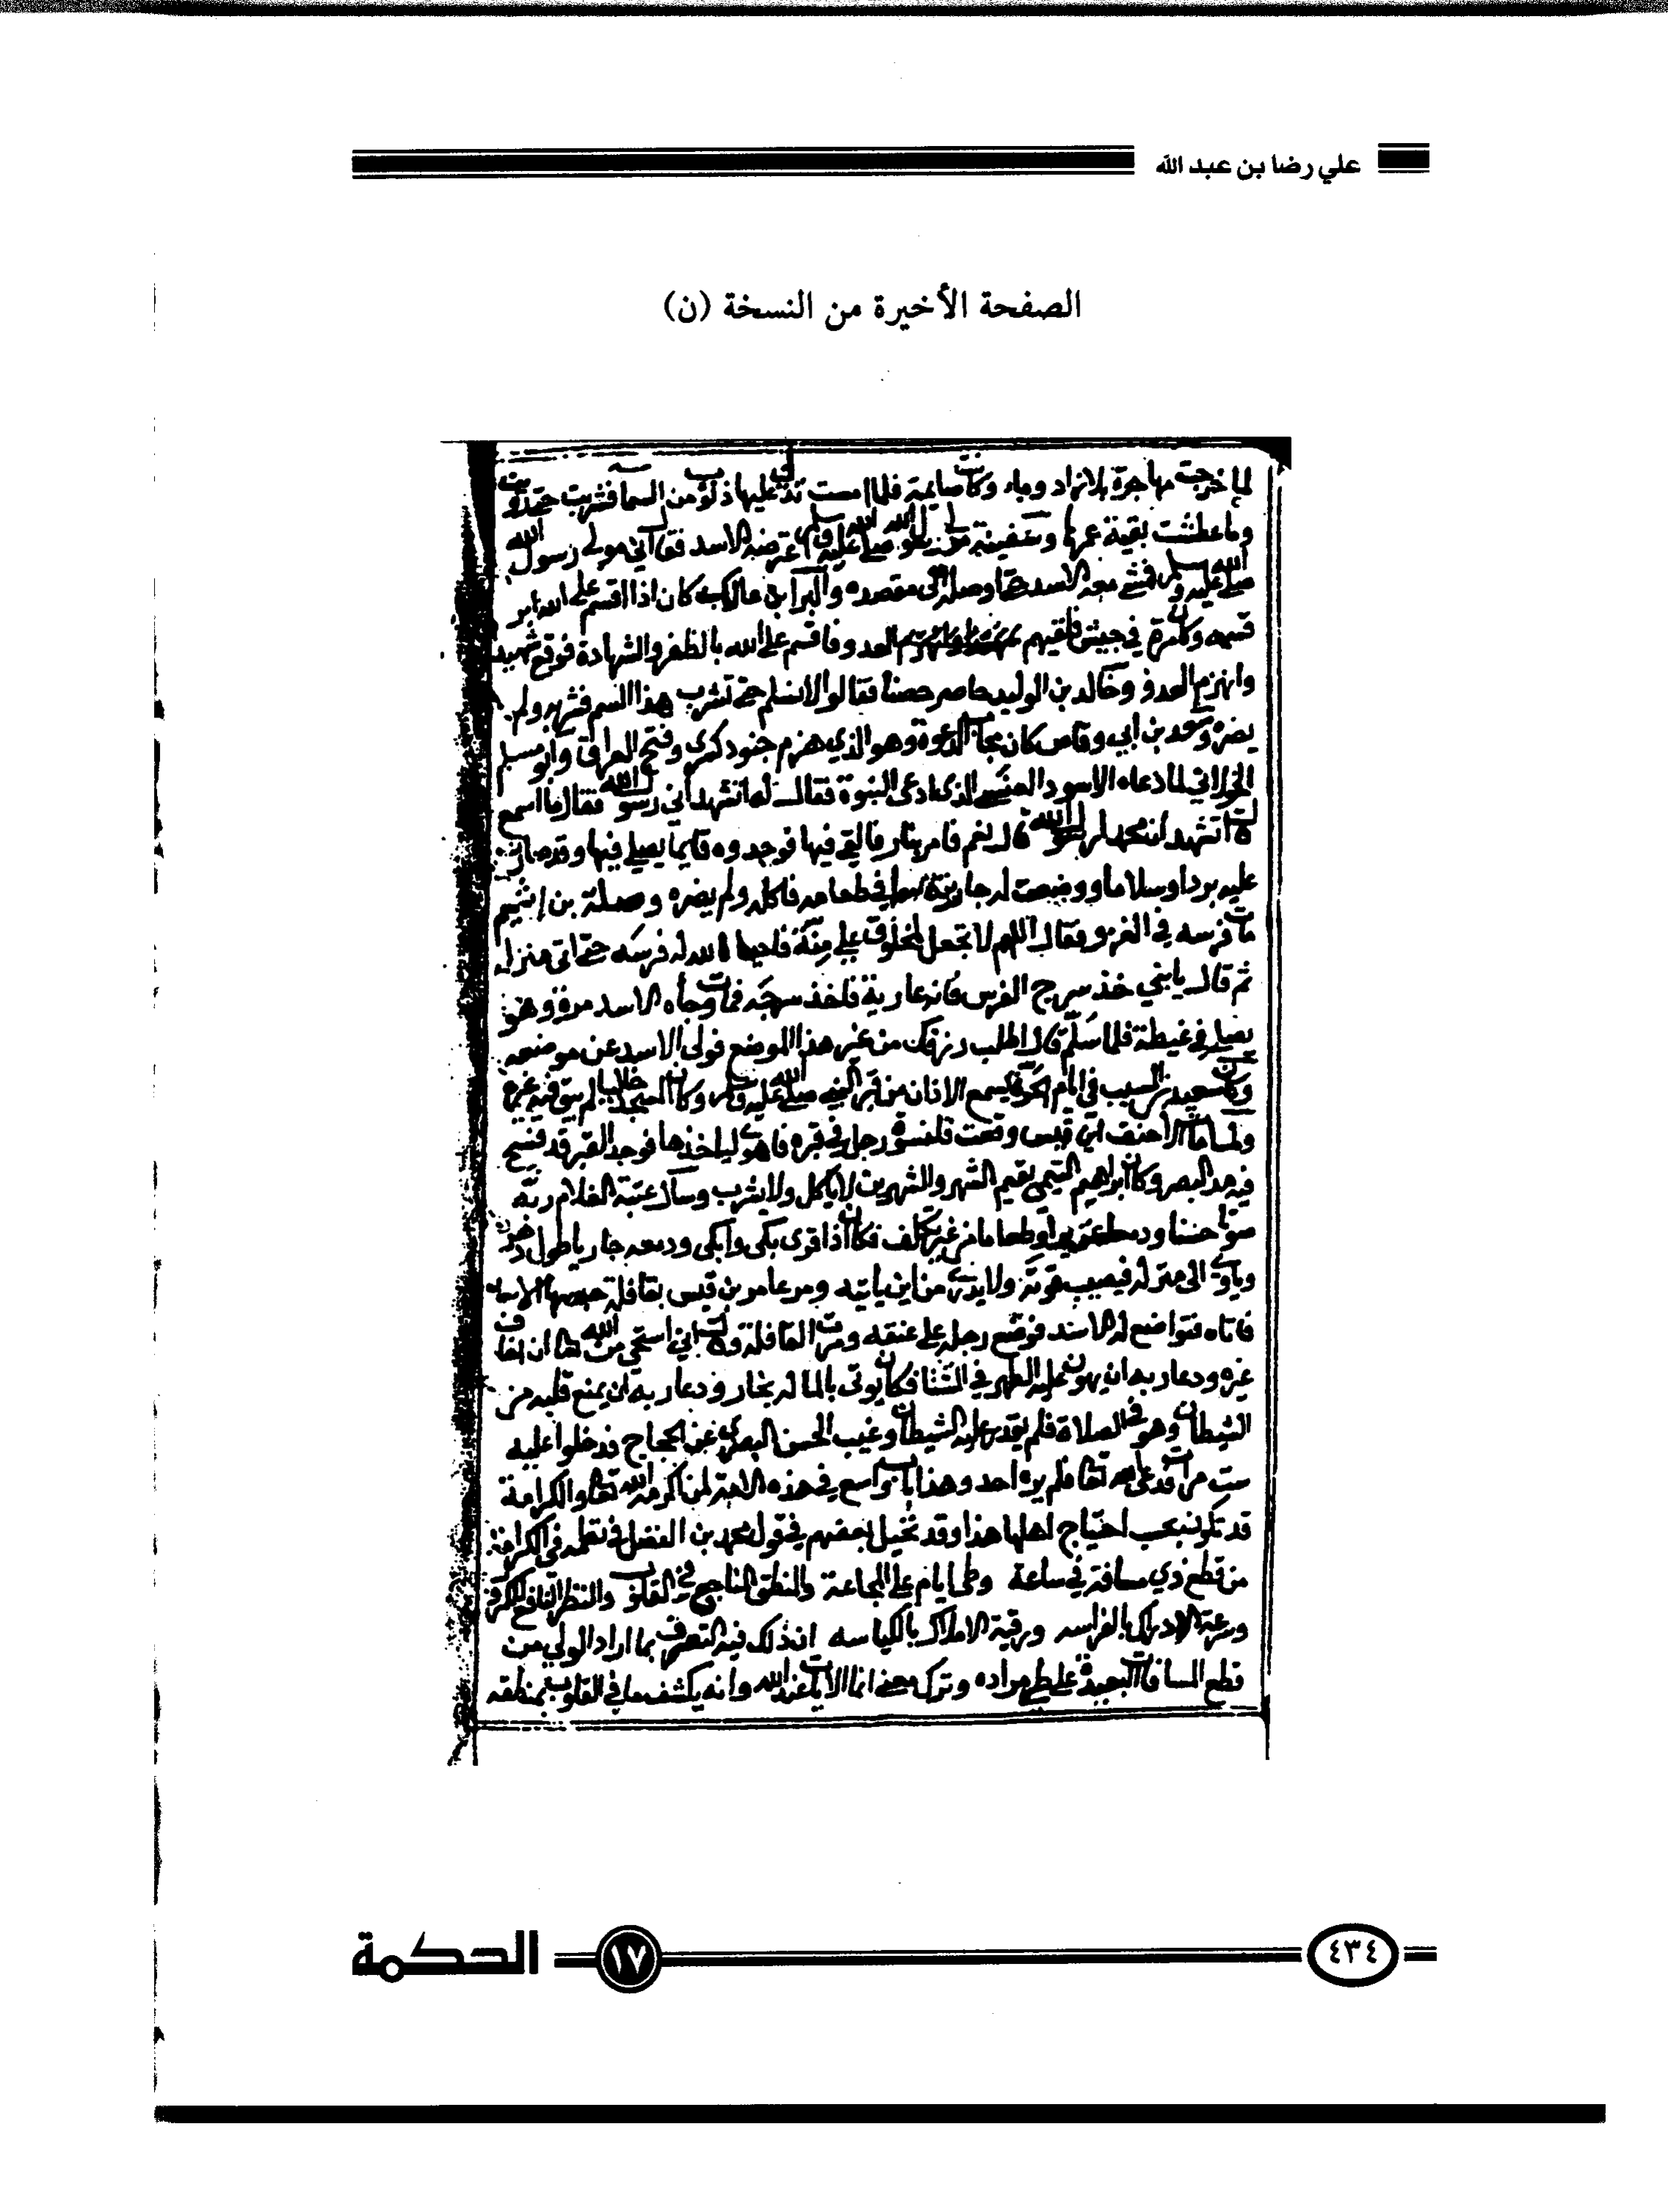 علي رضا بن عبد الله
الصفحة الأخيرة من النسخة (ن)
لما خرجت مهاجرة بلا زاد وماء وكانت صائمة فلما امست تدلى عليها دلو من السما فشربت حتى رويت
وما عطشت بقية عمرها وسفينة مولى رسول الله صلى الله عليه وسلم اعترضه الاسد فقال اني مولى رسول الله
صلى الله عليه وسلم فمشى معه الاسد حتى اوصله الى مقصده والبرا بن مالك كان اذا اقسم على الله ابر
قسمه وكان مرة في جيش فلقيهم العدو فاقسم على الله بالظفر والشهادة فوقع شهيد
وانهزم العدو وخالد بن الوليد حاصر حصنا فقالوا لا نسلم حتى تشرب هذا السم فشربه ولم
يضره وسعد بن ابي وقاص كان مجاب الدعوة وهو الذي هزم جنود كسرى وفتح العراق وابو مسلم
الخولاني لما دعاه الاسود العنسي الذي ادعى النبوة فقال له اتشهد اني رسول الله فقال ما اسمع
قال اتشهد ان محمدا رسول الله قال نعم فامر بنار فالقي فيها فوجدوه قايما يصلي فيها وقد صارت
عليه بردا وسلاما ووضعت له جاريته سما في طعامه فاكله ولم يضره وصلة بن اشيم
مات فرسه في الغزو فقال اللهم لا تجعل لمخلوق علي منة فاحيا الله له فرسه حتى اتى منزله
ثم قال يا بني خذ سرج الفرس فانه عارية فاخذ سرجه فمات وجاه الاسد مرة وهو
يصلي في غيطة فلما سلم قال اطلب رزقك من غير هذا الموضع فولى الاسد عن موضعه
وكان سعيد بن المسيب في ايام الحرة يسمع الاذان من قبر النبي صلى الله عليه وسلم وكان المسجد خاليا لم يبق فيه غيره
ولما مات الاحنف ابن قيس وقعت قلنسوة رجل في قبره فاهوى لياخذها فوجد القبر قد فسح
فيه مد البصر وكان ابراهيم التيمي يقيم الشهر والشهرين لا ياكل ولا يشرب وسال عتبة الغلام ربه
صوتا حسنا ودمعا غزيرا وطعاما من غير تكلف فكان اذا قرى بكى وابكى ودمعه جاريا طول دهره
وياوي الى منزله فيصيب قوته ولا يدري من اين ياتيه ومر عامر بن قيس بقافلة حبسها الاسد
فاتاه فتواضع له الاسد فوضع رجله على عنقه ومرت القافلة وقال اني استحي من الله ان اخاف
غيره ودعا ربه ان يهون عليه الطهر في الشتا فكان يوتى بالما له بخار ودعا ربه ان يمنع قلبه من
الشيطان وهو في الصلاة فلم يقدر عليه الشيطان وغيب الحسن البصري عن الحجاج فدخلوا عليه
ست مرات فدعا الله تعالى فلم يره احد وهذا باب واسع في هذه الامة لمن اكرمه الله تعالى والكرامة
قد تكون بحسب احتياج اهلها هذا وقد تخيل بعضهم في قول محمد بن الفضل في نظمه في الكرامة
من قطع ذي مسافة في ساعة وطي ايام على المجاعة والنطق الناجح في القلوب والنظر النافع
وسرعة الادراك بالفراسه ورقية الاملاك بالكياسه ان ذلك فيه التصرف بما اراد الولي من
قطع المسافات البعيدة على طي مراده وترك معنى انما الايات عند الله وانه يكشف ما في القلوب بمنطقه
٤٣٤
١٧
الحكمة